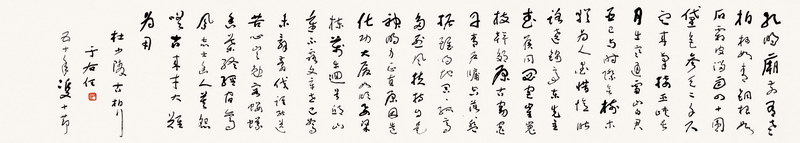 孔明廟前有老
柏柯如青銅根如
石霜皮溜雨四十圍
黛色參天二千尺
雲來氣接巫峽長
月出寒通雪山白君
臣已與時際會樹木
猶為人愛惜憶昨
路遶錦亭東先主
武侯同閟宮崔嵬
枝幹郊原古窈窕
丹青戶牖空落落盤
踞雖得地冥冥孤高
多烈風扶持自是
神明力正直原因造
化功大廈如傾要梁
棟萬牛迴首丘山
重不露文章世已驚
未辭剪伐誰能送
苦心豈免容螻蟻
香葉終經宿鸞
鳳志士幽人莫怨
嗟古來材大難
為用
杜少陵古柏行
于右任
五十年雙十節